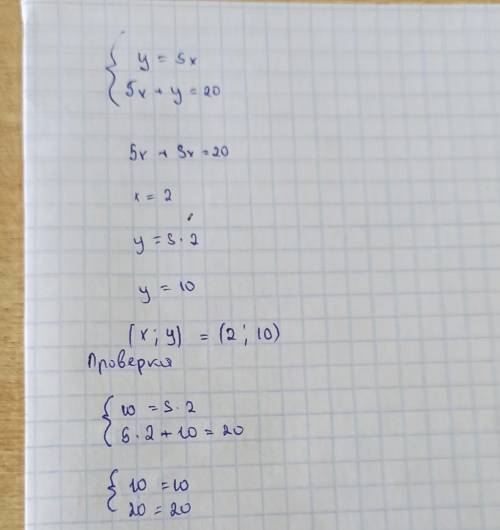 { y = 5x
5x + y = 20
5x + 5x = 20
x = 2
y = 5 · 2
y = 10
(x ; y) = (2 ; 10)
Проверка
{ 10 = 5 · 2
5 · 2 + 10 = 20
{ 10 = 10
20 = 20